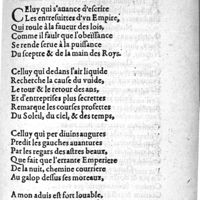 CEluy qui s'auance d'escrire
Les entresuittes d'vn Empire,
Qui roule à la faueur des lois,
Comme il fault que l'obeïssance
Se rende serue à la puissance
Du sceptre & de la main des Roys.
Celluy qui dedans l'air liquide
Recherche la cause du vuide,
Le tour & le retour des ans,
Et d'entreprises plus secrettes
Remarque les courses profettes
Du Soleil, du ciel, & des temps,
Celluy qui par diuins augures
Predit les gauches auantures
Par les regars des astres beaux,
Que fait que l'errante Emperiere
De la nuit, chemine courriere
Au galop dessus ses moreaux,
A mon aduis est fort louable,